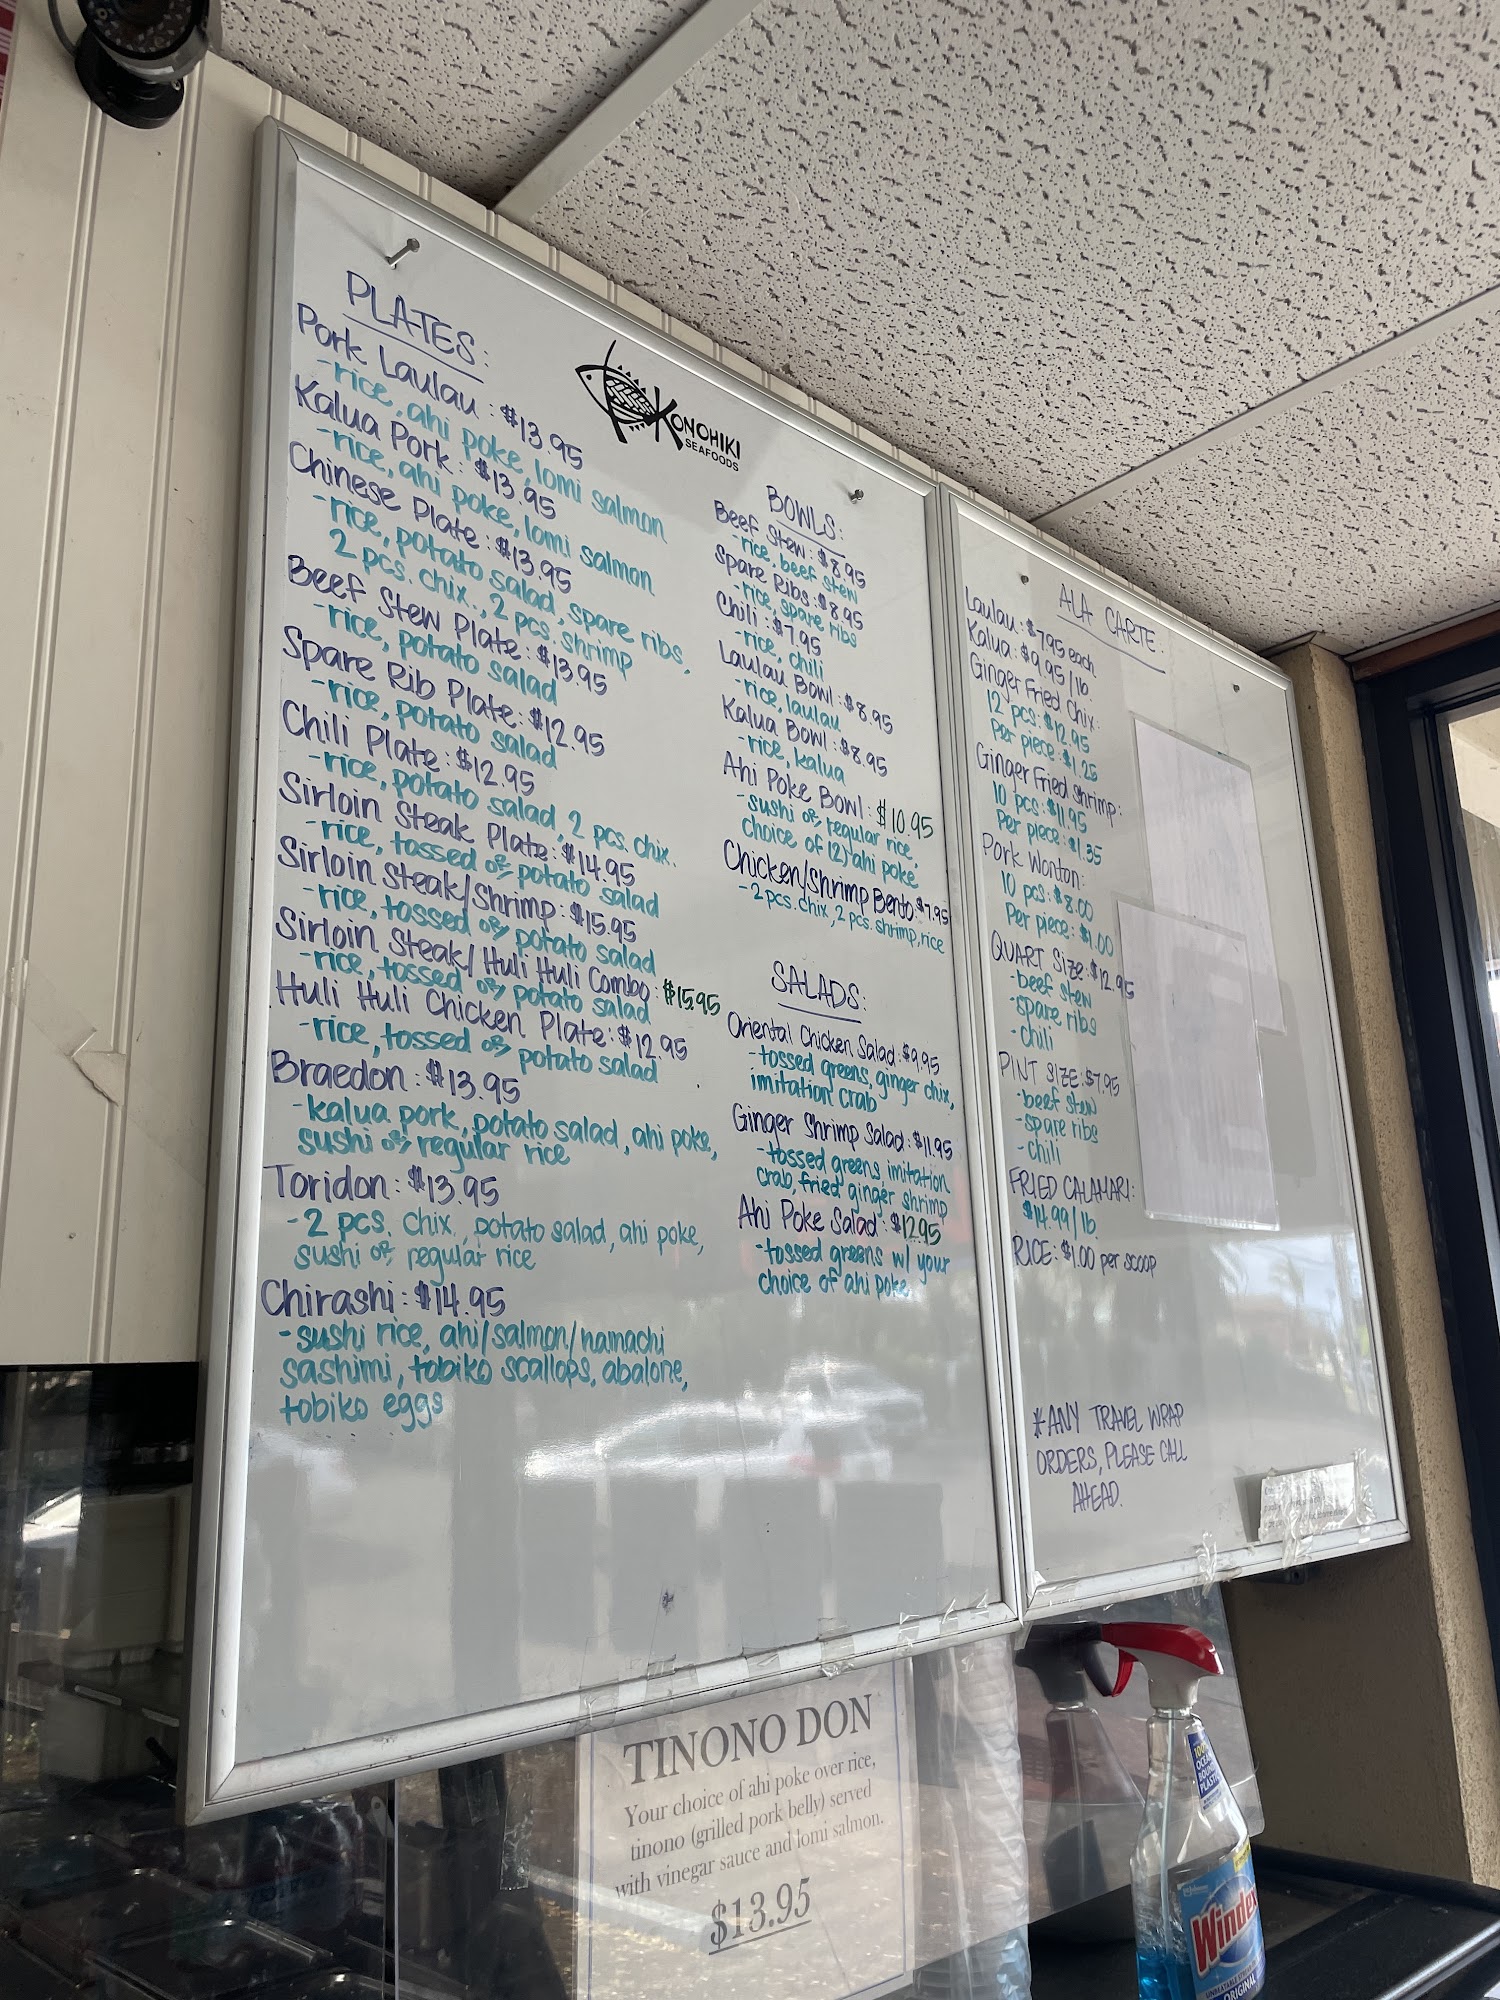 PLATES:
Pork Laulau: $13.95
-rice, ahi poke, lomi salmon
Kalua Pork: $13.95
-rice, ahi poke, lomi salmon
Chinese Plate: $13.95
-rice, potato salad, spare ribs,
2 pcs. chix., 2 pcs. shrimp
Beef Stew Plate: $13.95
-rice, potato salad
Spare Rib Plate: $12.95
-rice, potato salad
Chili Plate: $12.95
-rice, potato salad, 2 pcs. chix.
Sirloin Steak Plate: $14.95
-rice, tossed or potato salad
Sirloin Steak/Shrimp: $15.95
-rice, tossed or potato salad
Sirloin Steak/Huli Huli Combo: $15.95
-rice, tossed or potato salad
Huli Huli Chicken Plate: $12.95
-rice, tossed or potato salad
Braedon: $13.95
-kalua pork, potato salad, ahi poke,
sushi or regular rice
Toridon: $13.95
-2 pcs. chix, potato salad, ahi poke,
sushi or regular rice
Chirashi: $14.95
-sushi rice, ahi/salmon/hamachi
sashimi, tobiko scallops, abalone,
tobiko eggs
KONOHIKI
SEAFOODS
BOWLS:
Beef Stew: $8.95
-rice, beef stew
Spare Ribs: $8.95
-rice, spare ribs
Chili: $7.95
-rice, chili
Laulau Bowl: $8.95
-rice, laulau
Kalua Bowl: $8.95
-rice, kalua
Ahi Poke Bowl: $10.95
-sushi or regular rice,
choice of (2) ahi poke
Chicken/Shrimp Bento: $7.95
-2 pcs. chix, 2 pcs. shrimp, rice
SALADS:
Oriental Chicken Salad: $9.95
-tossed greens, ginger chix,
imitation crab
Ginger Shrimp Salad: $11.95
-tossed greens, imitation
crab, fried ginger shrimp
Ahi Poke Salad: $12.95
-tossed greens w/ your
choice of ahi poke
ALA CARTE:
Laulau: $7.95 each
Kalua: $9.95/lb.
Ginger Fried Chix:
12 pcs: $12.95
Per piece: $1.25
Ginger Fried Shrimp:
10 pcs: $11.95
Per piece: $1.35
Pork Wonton:
10 pcs: $8.00
Per piece: $1.00
QUART SIZE: $12.95
-beef stew
-spare ribs
-chili
PINT SIZE: $7.95
-beef stew
-spare ribs
-chili
FRIED CALAMARI:
$14.99/lb.
RICE: $1.00 per scoop
*ANY TRAVEL WRAP
ORDERS, PLEASE CALL
AHEAD.
TINONO DON
Your choice of ahi poke over rice,
tinono (grilled pork belly) served
with vinegar sauce and lomi salmon.
$13.95
100%
OCEAN
BOUND
PLASTIC
Windex
ORIGINAL